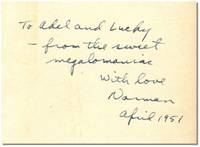 To Adel and Lucky
– from the sweet
megalomaniac
with love
Norman
April 1951